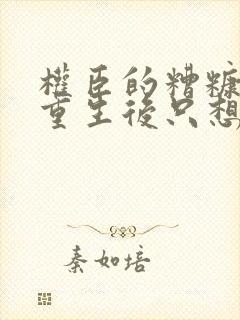 權臣的糟糠
重生後只想
秦如培